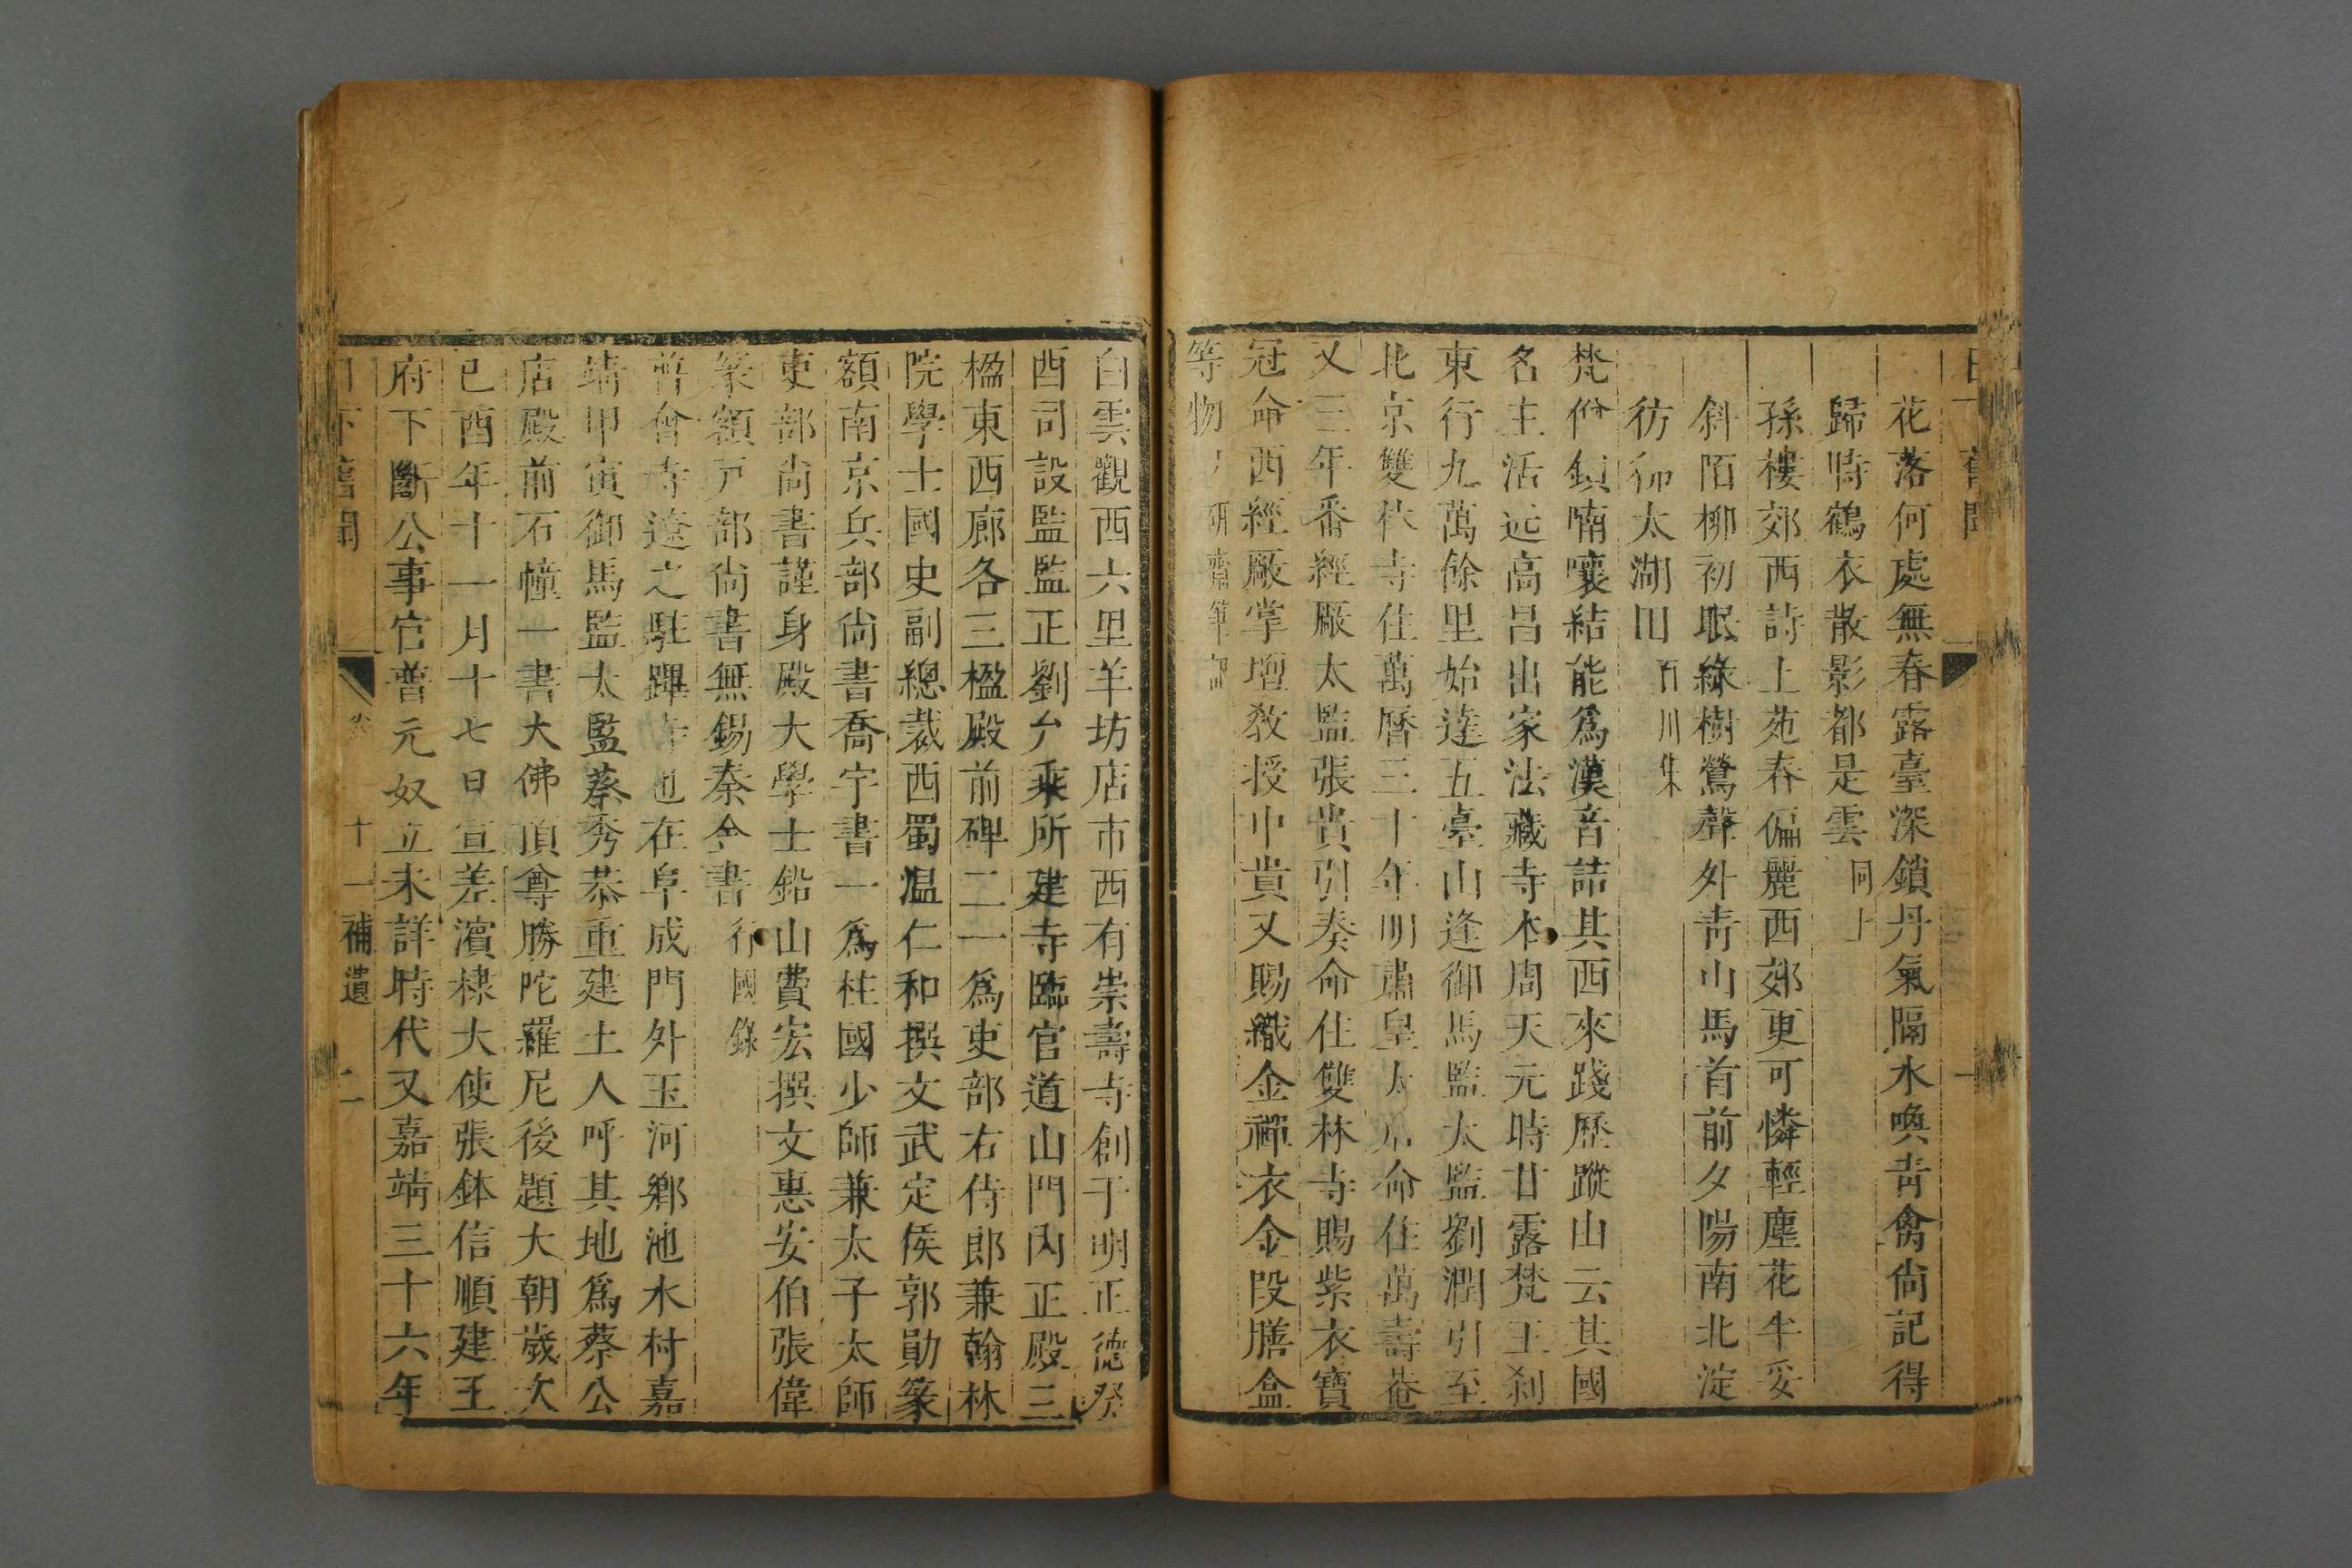 花落何處無春露臺深鎖丹氣隔水喚青禽尚記得
歸時鶴衣散影都是雲同上
孫樓郊西詩上苑春偏麗西郊更可憐輕塵花半妥
斜陌柳初眠綠樹鶯聲外青山馬首前夕陽南北淀
彷彿太湖田百川集
梵僧鎖喃嚷結能爲漢音詰其西來踐歷蹤山云其國
名主活远高昌出家法藏寺本周天元時甘露梵王刹
東行九萬餘里始達五臺山逢御馬監太監劉潤引至
北京雙林寺住萬曆三十年明肅皇太后命住萬壽菴
又三年番經廠太監張貴引奏命住雙林寺賜紫衣寶
冠命西經廠掌壇敎授中貴又賜織金禪衣金段膳盒
等物研齋筆記
白雲觀西六里羊坊店市西有崇壽寺創于明正德癸
酉司設監監正劉允乘所建寺臨官道山門內正殿三
楹東西廊各三楹殿前碑二一爲吏部右侍郎兼翰林
院學士國史副總裁西蜀温仁和撰文武定侯郭勛篆
額南京兵部尙書喬宇書一爲柱國少師兼太子太師
吏部尙書謹身殿大學士鉛山費宏撰文惠安伯張偉
篆額戸部尙書無錫秦金書行國錄
普會寺遼之駐蹕寺也在阜成門外玉河鄉池水村嘉
靖甲寅御馬監太監蔡秀恭重建土人呼其地爲蔡公
店殿前石幢一書大佛頂尊勝陀羅尼後題大朝歲次
己酉年十一月十七日宣差濱棣大使張鉢信順建王
府下斷公事官普元奴立未詳時代又嘉靖三十六年
日下舊聞 卷 十一補遺 二